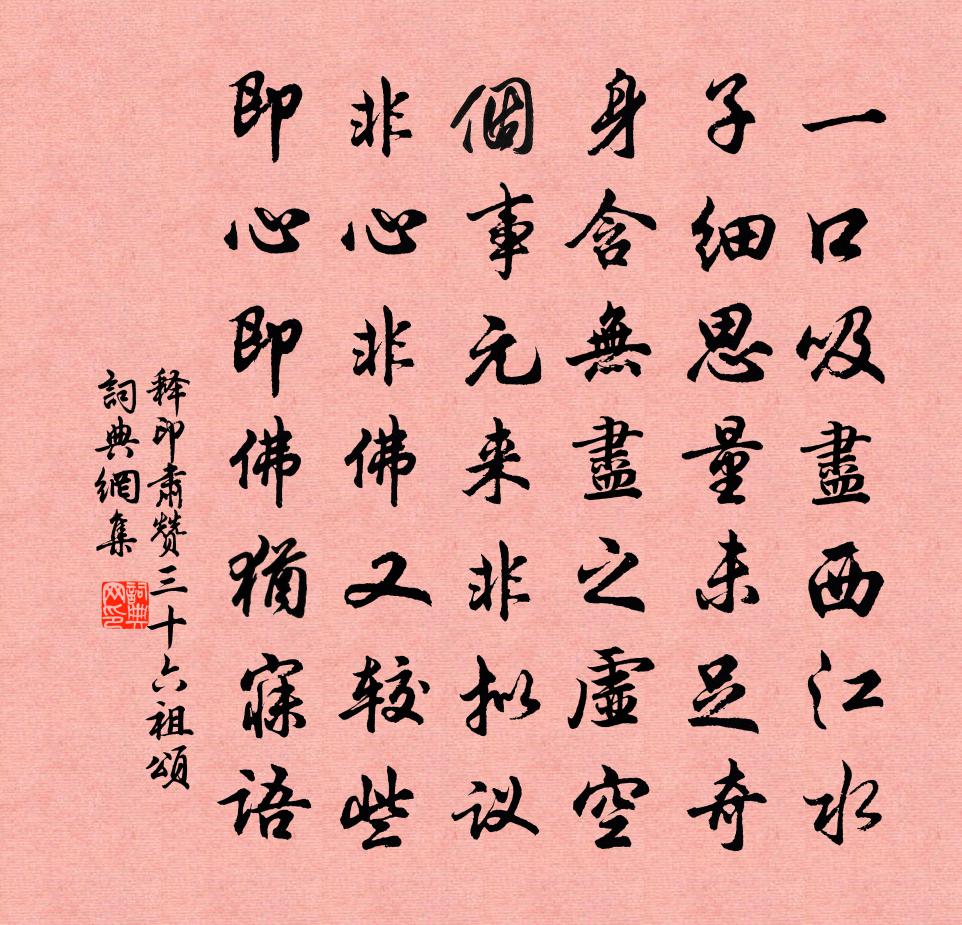 一口吸盡西江水
子細思量未足奇
身含無盡之虛空
個事元来非拟议
非心非佛又较些
即心即佛犹寐语
释印肃赞三十六祖頌
詞典網集
詞典网印